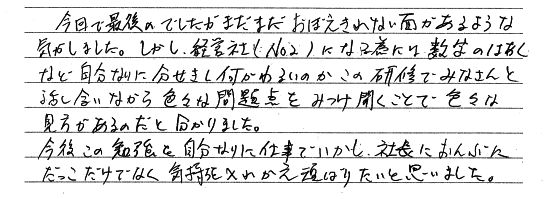 今日で最後のでしたがまだまだおぼえきれない面があるような
気がしました。しかし、経営社(No2)になる為には、数字のはあく
など自分なりに分せきし何がわるいのかこの研修でみなさんと
話し合いながら色々な問題点をみつけ聞くことで色々な
見方があるのだと分かりました。
今後この勉強を自分なりに仕事でいかし、社長におんぶに
だっこだけでなく気持を入れかえ頑ばりたいと思いました。